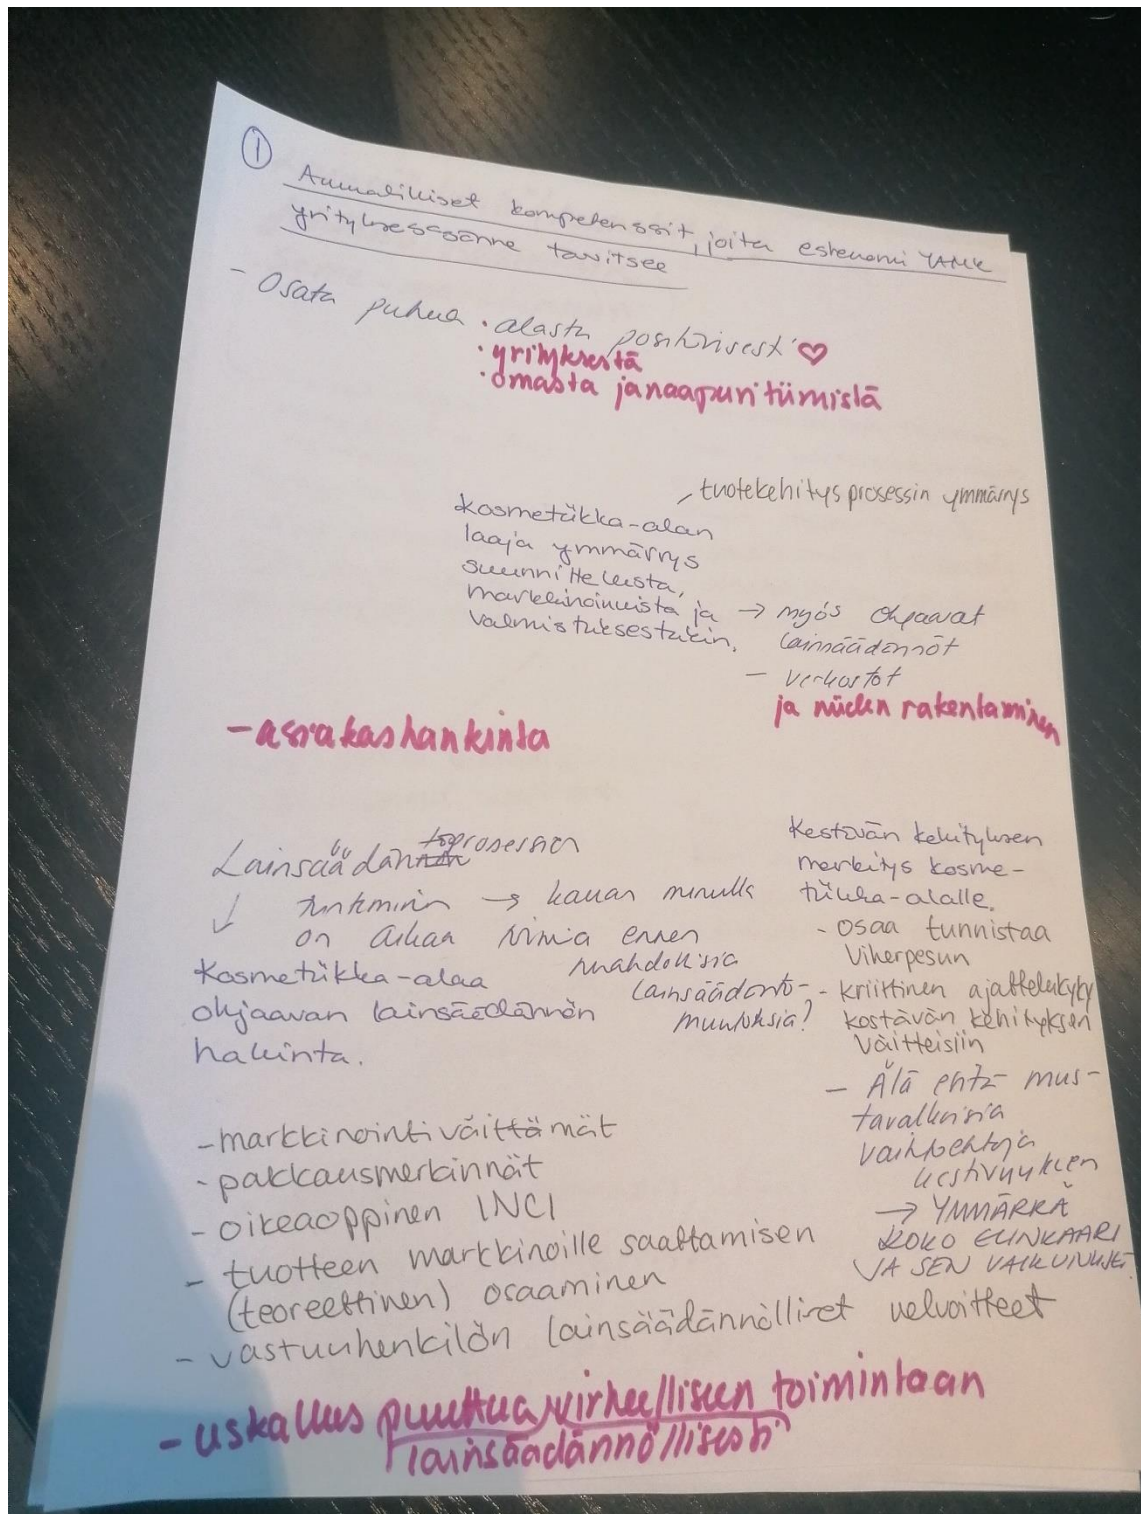 ①
Ammatilliset kompetenssit, joita estenomi YAMK
yrityksessänne tarvitsee
- Osata puhua • alasta positiivisesti ♡
• yrityksestä
• omasta ja naapuritiimistä
, tuotekehitysprosessin ymmärrys
kosmetiikka-alan
laaja ymmärrys
suunnittelusta,
markkinoinnista ja
valmistuksestakin.
→ myös ohjaavat
lainsäädännöt
- verkostot
ja niiden rakentaminen
- asiakashankinta
Lainsäädäntöprosessin
tunteminen → kauan minulla
on aikaa toimia ennen
mahdollisia
lainsäädäntö-
muutoksia?
↓
Kosmetiikka-alaa
ohjaavan lainsäädännön
hallinta.
- markkinointiväittämät
- pakkausmerkinnät
- oikeaoppinen INCI
- tuotteen markkinoille saattamisen
(teoreettinen) osaaminen
- vastuuhenkilön lainsäädännölliset velvoitteet
Kestävän kehityksen
merkitys kosme-
tiikka-alalle.
- osaa tunnistaa
Viherpesun
- kriittinen ajattelukyky
kestävän kehityksen
väitteisiin
- Älä ehtä mus-
tavalkoisia
vaihtoehtoja
kestävyyteen
→ YMMÄRRÄ
KOKO ELINKAARI
JA SEN VAIKUTUKSET
- uskallus puuttua virheelliseen toimintaan
lainsäädännöllisesti